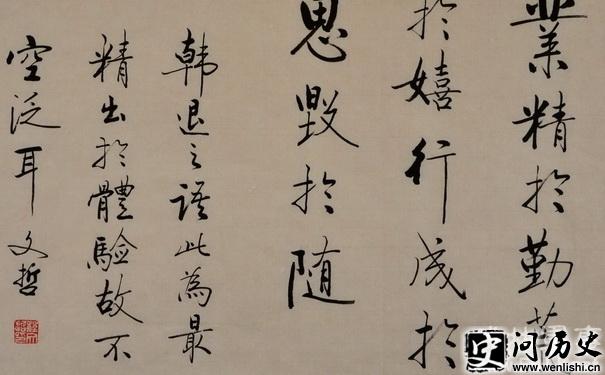 業精於勤荒
於嬉行成於
思毀於隨
韓退之語此為最
精出於體驗故不
空泛耳 文哲
史 问历史
www.wenlishi.cn